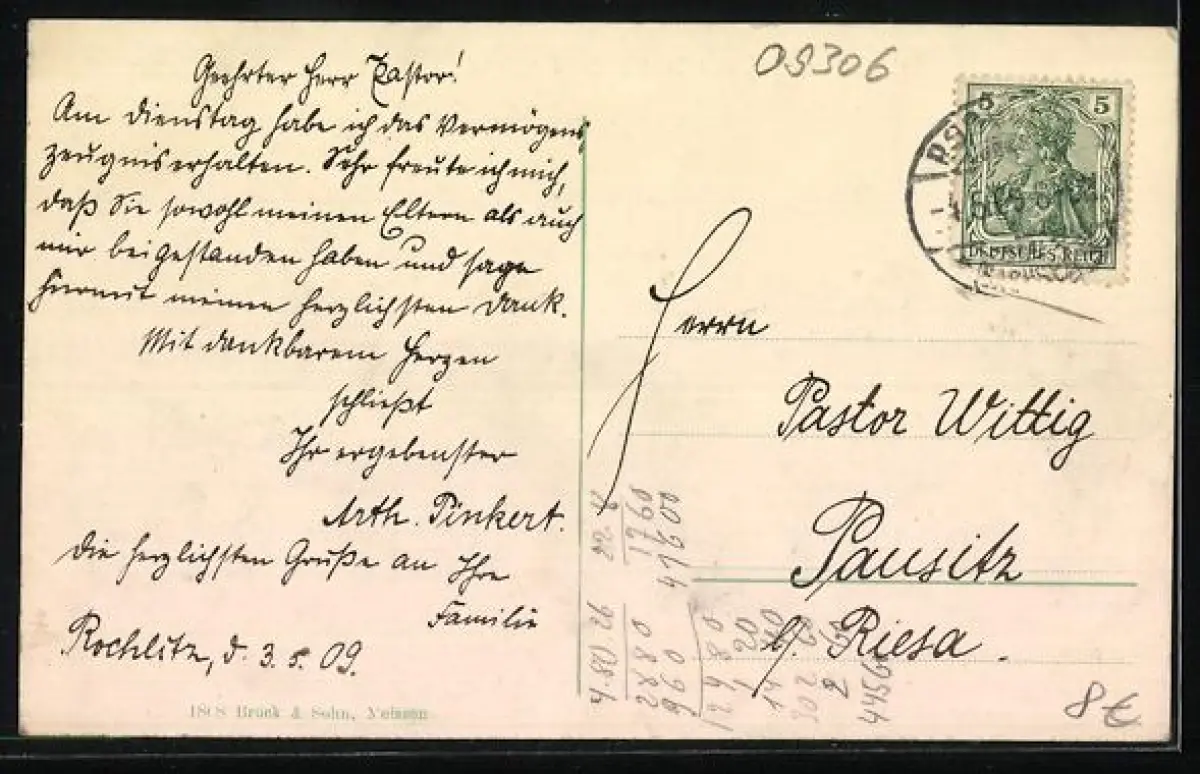 09306
Geehrter Herr Pastor!
Am Dienstag habe ich das Vermögens
zeugnis erhalten. Sehr freute ich mich,
daß Sie sowohl meinen Eltern als auch
mir beigestanden haben und sage
hiermit meinen herzlichsten Dank.
Mit dankbarem Herzen
schließt
Ihr ergebenster
Arth. Pinkert.
Die herzlichsten Grüße an Ihre
Familie
Rochlitz, d. 3. 5. 09.
1808 Brück & Sohn, Meissen
5 5
DEUTSCHES REICH
Herrn
Pastor Wittig
Pausitz
b/ Riesa.
22
1760
41600
4.80.26
2880
960
12480
120
1440
8 €